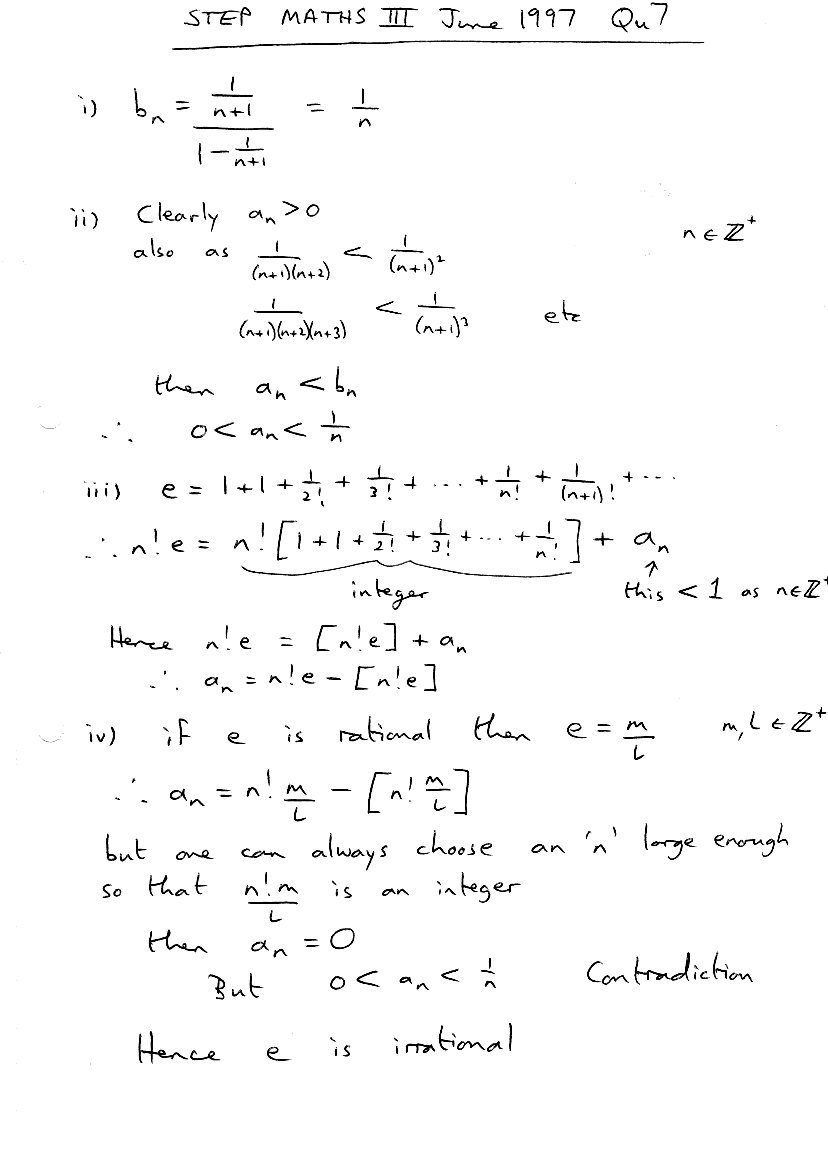 STEP MATHS III June 1997 Qu7
i) bₙ = (1/(n+1))/(1 − 1/(n+1)) = 1/n
ii) Clearly aₙ > 0 n ∈ ℤ⁺
also as 1/((n+1)(n+2)) < 1/(n+1)²
1/((n+1)(n+2)(n+3)) < 1/(n+1)³ etc
then aₙ < bₙ
∴ 0 < aₙ < 1/n
iii) e = 1 + 1 + 1/2! + 1/3! + ··· + 1/n! + 1/(n+1)! + ···
∴ n!e = n! [1 + 1 + 1/2! + 1/3! + ··· + 1/n!] + aₙ
integer ↑ this < 1 as n∈ℤ⁺
Hence n!e = [n!e] + aₙ
∴ aₙ = n!e − [n!e]
iv) if e is rational then e = m/L m, L ∈ ℤ⁺
∴ aₙ = n! m/L − [n! m/L]
but one can always choose an 'n' large enough
so that n!m/L is an integer
then aₙ = 0
But 0 < aₙ < 1/n Contradiction
Hence e is irrational